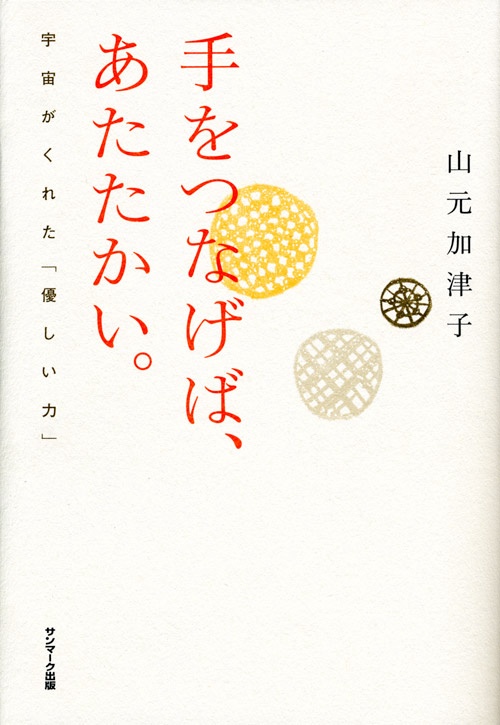 山元加津子
手をつなげば、
あたたかい。
宇宙がくれた「優しい力」
サンマーク出版